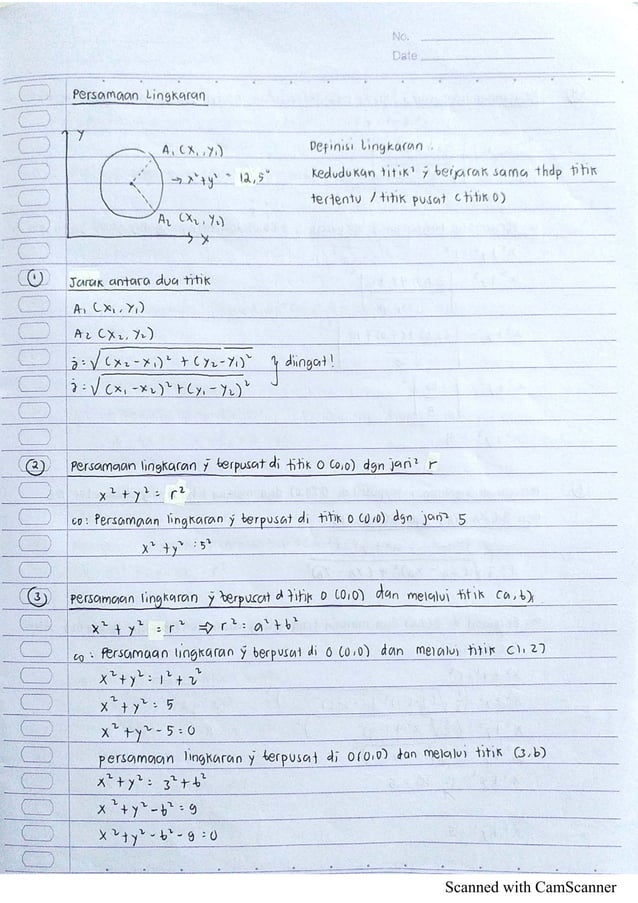 No.
Date
Persamaan Lingkaran
Y
A₁ (X₁, Y₁)
→ x² + y² = 12,5²
A₂ (X₂, Y₂)
X
Definisi Lingkaran :
Kedudukan titik² ÿ berjarak sama thdp titik
tertentu / titik pusat (titik O)
① Jarak antara dua titik
A₁ (X₁, Y₁)
A₂ (X₂, Y₂)
j = √(x₂ - x₁)² + (y₂ - y₁)²
} diingat!
j = √(x₁ - x₂)² + (y₁ - y₂)²
② Persamaan lingkaran ÿ terpusat di titik O (0,0) dgn jari² r
x² + y² = r²
co : Persamaan lingkaran ÿ terpusat di titik O (0,0) dgn jari² 5
x² + y² = 5²
③ Persamaan lingkaran ÿ terpusat d titik O (0,0) dan melalui titik (a,b)
x² + y² = r² ⇒ r² = a² + b²
co : Persamaan lingkaran ÿ berpusat di O (0,0) dan melalui titik (1,2)
x² + y² = 1² + 2²
x² + y² = 5
x² + y² - 5 = 0
persamaan lingkaran ÿ terpusat di O(0,0) dan melalui titik (3,b)
x² + y² = 3² + b²
x² + y² - b² = 9
x² + y² - b² - 9 = 0
Scanned with CamScanner